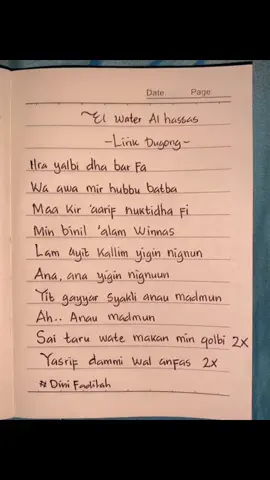 Date Page
El Water Al hassas
-Lirik Dugong-
Ilra yalbi dha bar Fa
Wa awa mir hubbu batba
Maa kir 'aarif nuktidha fi
Min binil 'alam Winnas
Lam ayit Kallim yigin nignun
Ana, ana yigin nignuun
Yit gayyar syakli anau madmun
Ah.. Anau madmun
Sai taru wate makan min qolbi 2x
Yasrif dammi wal anfas 2x
Dini Fadilah